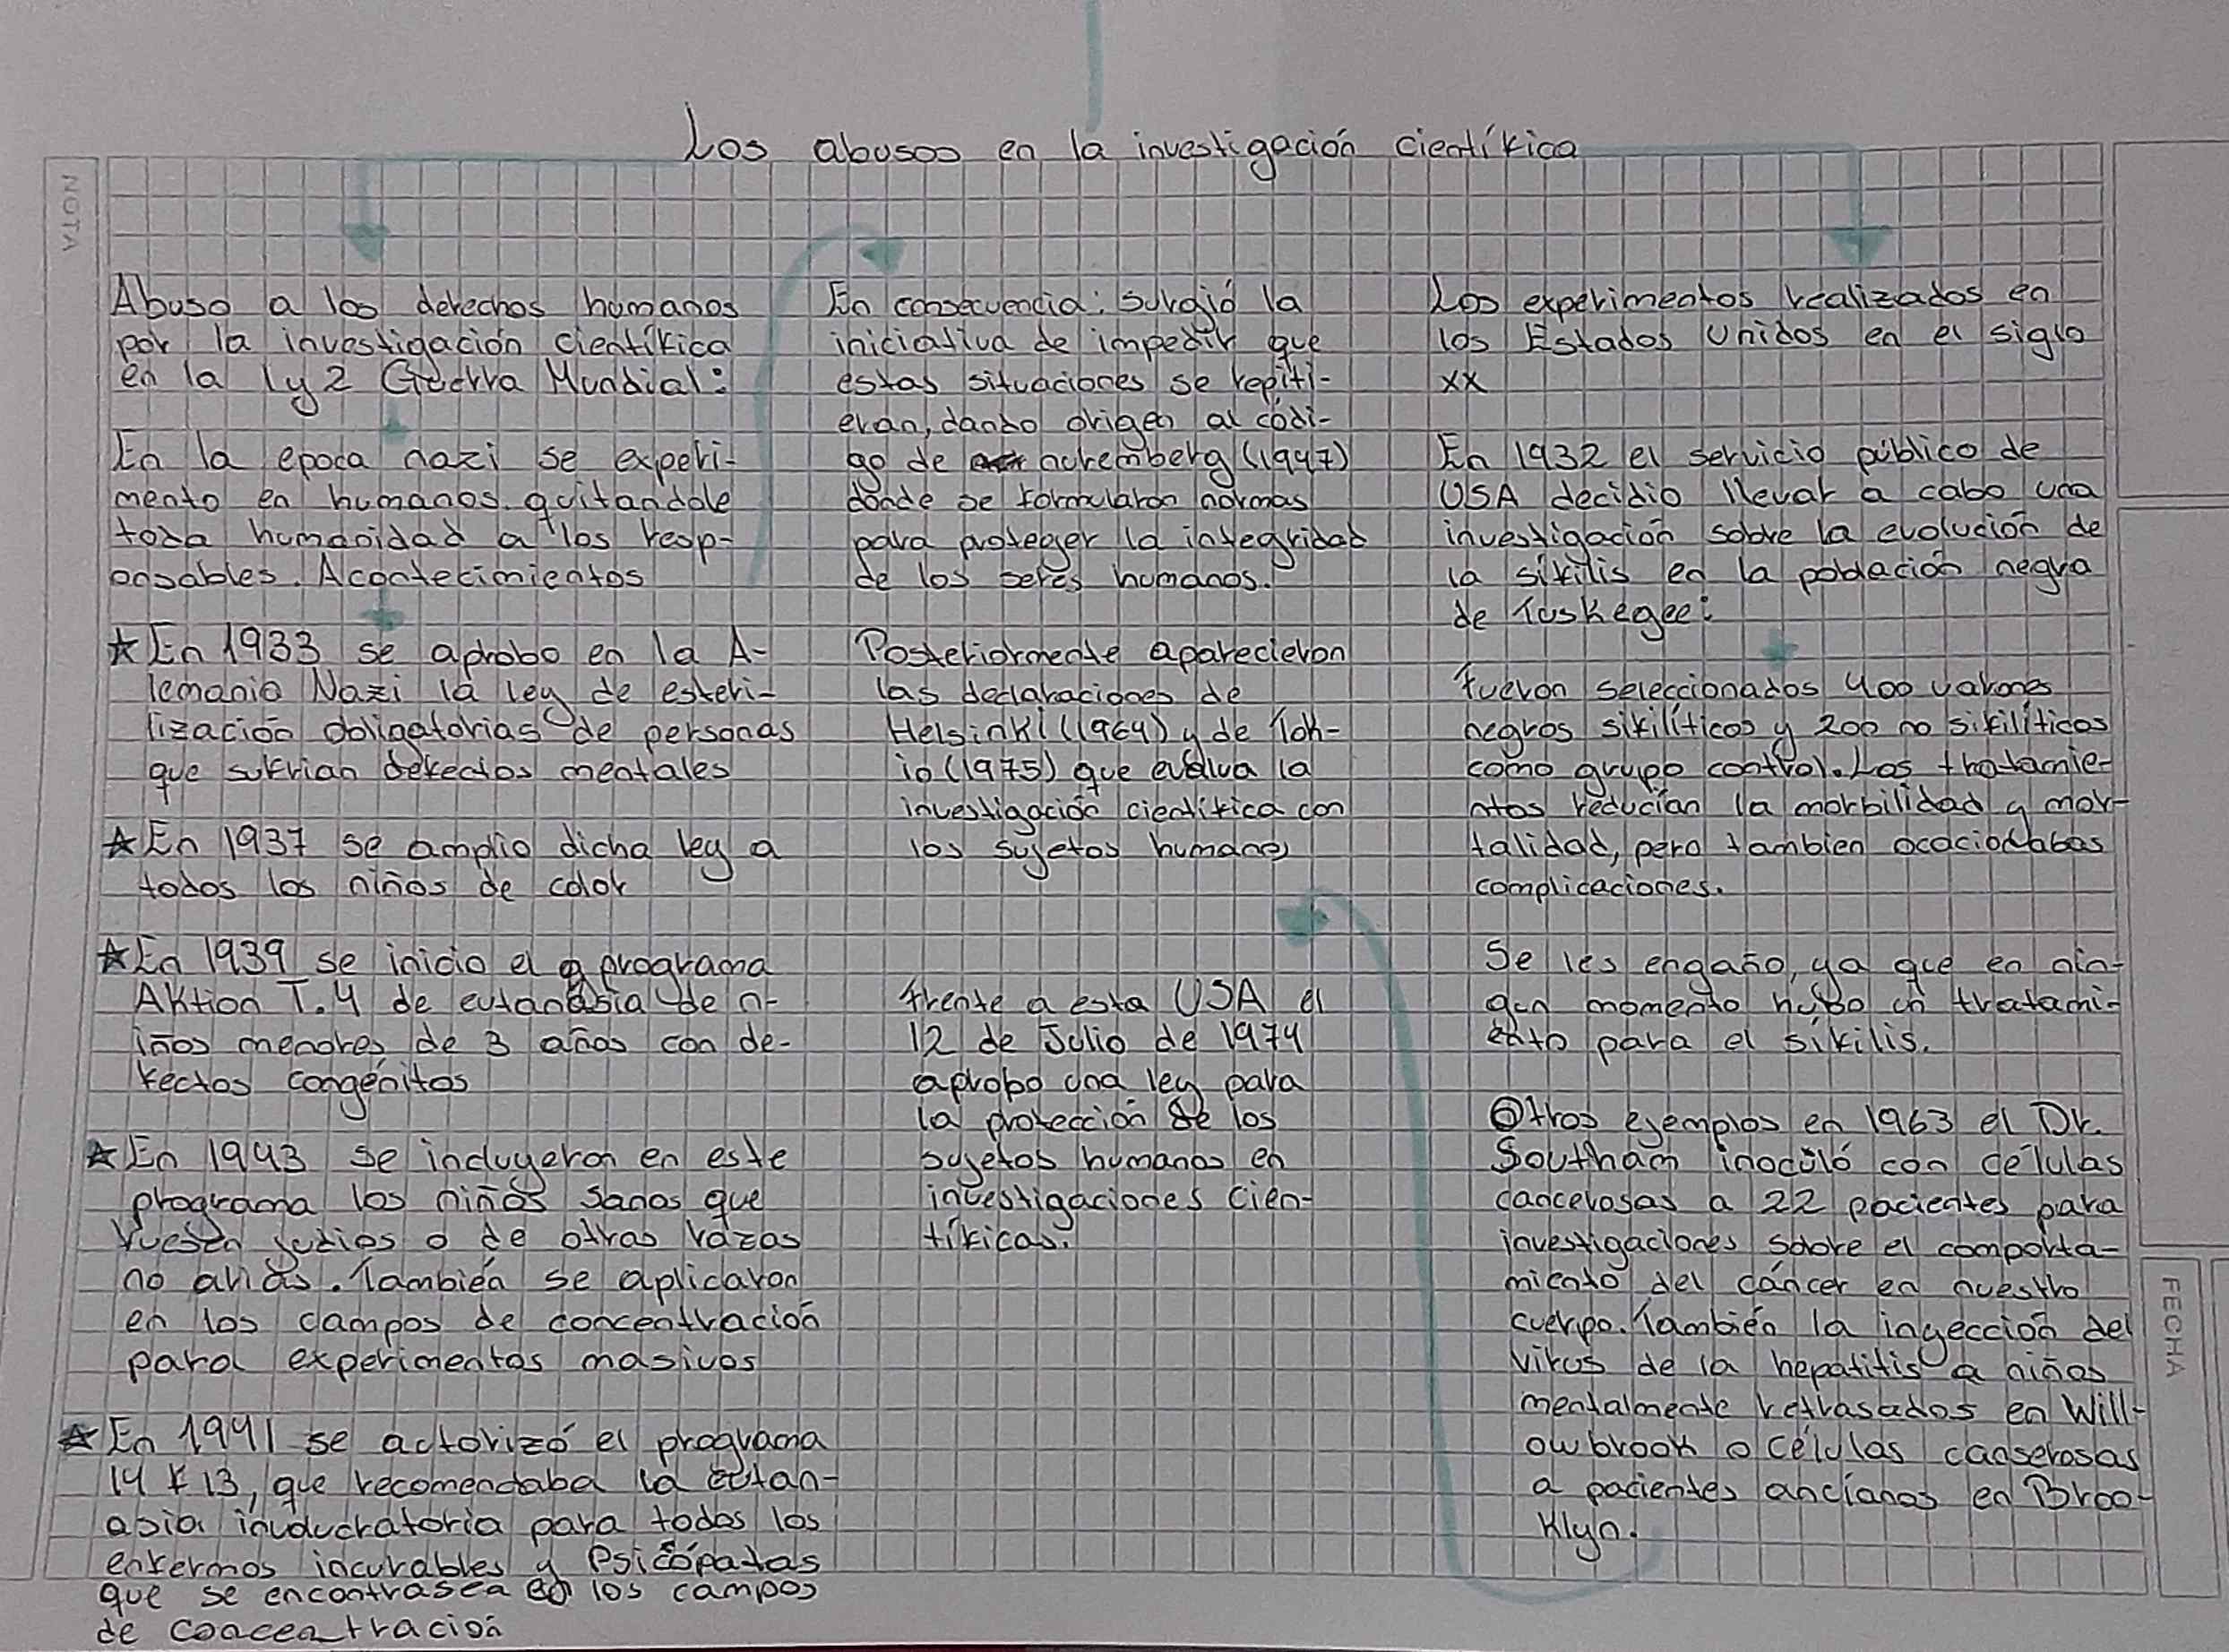 Los abusos en la investigación científica
NOTA
Abuso a los derechos humanos
por la investigación científica
en la 1 y 2 Guerra Mundial:
En la epoca nazi se experi-
mento en humanos quitandole
toda humanidad a los resp-
onsables. Acontecimientos
★ En 1933 se aprobo en la A-
lemania Nazi la ley de esteri-
lización obligatorias de personas
que sufrian defectos mentales
★ En 1937 se amplio dicha ley a
todos los niños de color
★ En 1939 se inicio el programa
Aktion T.4 de eutanasia de n-
iños menores de 3 años con de-
fectos congénitos
★ En 1943 se incluyeron en este
programa los niños sanos que
fuesen judios o de otras razas
no arias. También se aplicaron
en los campos de concentración
para experimentos masivos
★ En 1941 se actorizó el programa
14 F 13, que recomendaba la eutan-
asia involucratoria para todos los
enfermos incurables y Psicópatas
que se encontrasen en los campos
de concentración
En consecuencia: surgió la
iniciativa de impedir que
estas situaciones se repiti-
eran, dando origen al códi-
go de nuremberg (1947)
donde se formularon normas
para proteger la integridad
de los seres humanos.
Posteriormente aparecieron
las declaraciones de
Helsinki (1964) y de Tok-
io (1975) que evalua la
investigación científica con
los sujetos humanos
frente a esta USA el
12 de Julio de 1974
aprobo una ley para
la protección de los
sujetos humanos en
investigaciones cien-
tíficas.
Los experimentos realizados en
los Estados Unidos en el siglo
XX
En 1932 el servicio público de
USA decidio llevar a cabo una
investigación sobre la evolución de
la sífilis en la población negra
de Tuskegee:
fueron seleccionados 400 varones
negros sifilíticos y 200 no sifilíticos
como grupo control. Las tratamie-
ntos reducían la morbilidad y mor-
talidad, pero tambien ocacionabas
complicaciones.
Se les engaño, ya que en nin-
gun momento hubo un tratami-
ento para el sífilis.
Otros ejemplos en 1963 el Dr.
Southam inoculó con células
cancerosas a 22 pacientes para
investigaciones sobre el comporta-
miento del cáncer en nuestro
cuerpo. También la inyección del
virus de la hepatitis a niños
mentalmente retrasados en Will-
owbrook o células canserosas
a pacientes ancianos en Broo-
klyn.
FECHA